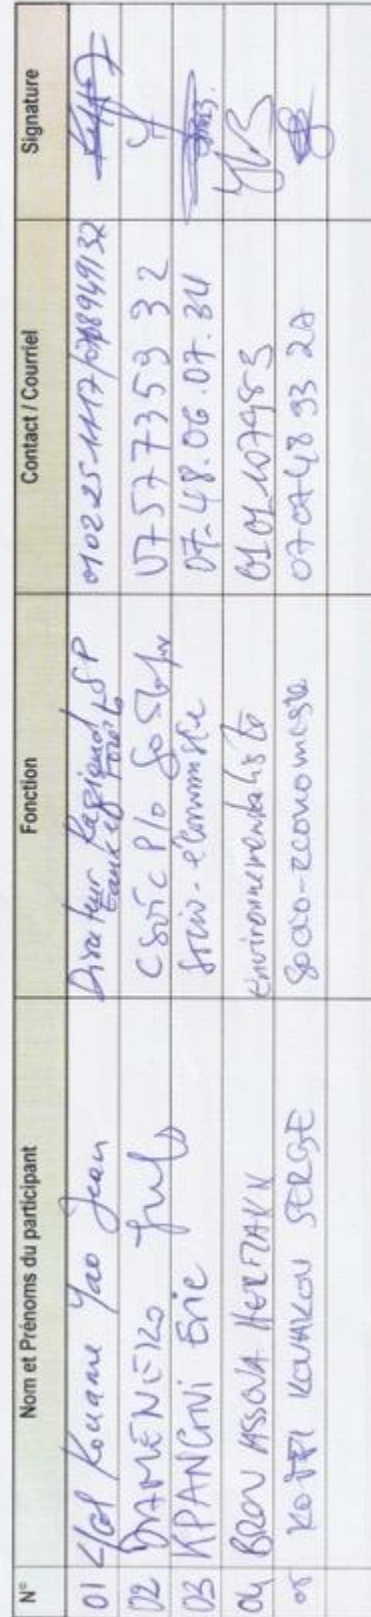 N° Nom et Prénoms du participant Fonction Contact / Courriel Signature
01 Kouame Yao Jean Directeur Régional Eaux et Forêts SP 0102251117/0708949132
02 Jules 0757735932
03 KPANGNI Eric Socio-économiste 07-48.06.07.34
04 BROU ASSOUA HERMANN Environnementaliste 0101107983
05 KOFFI KOUAKOU SERGE Socio-economiste